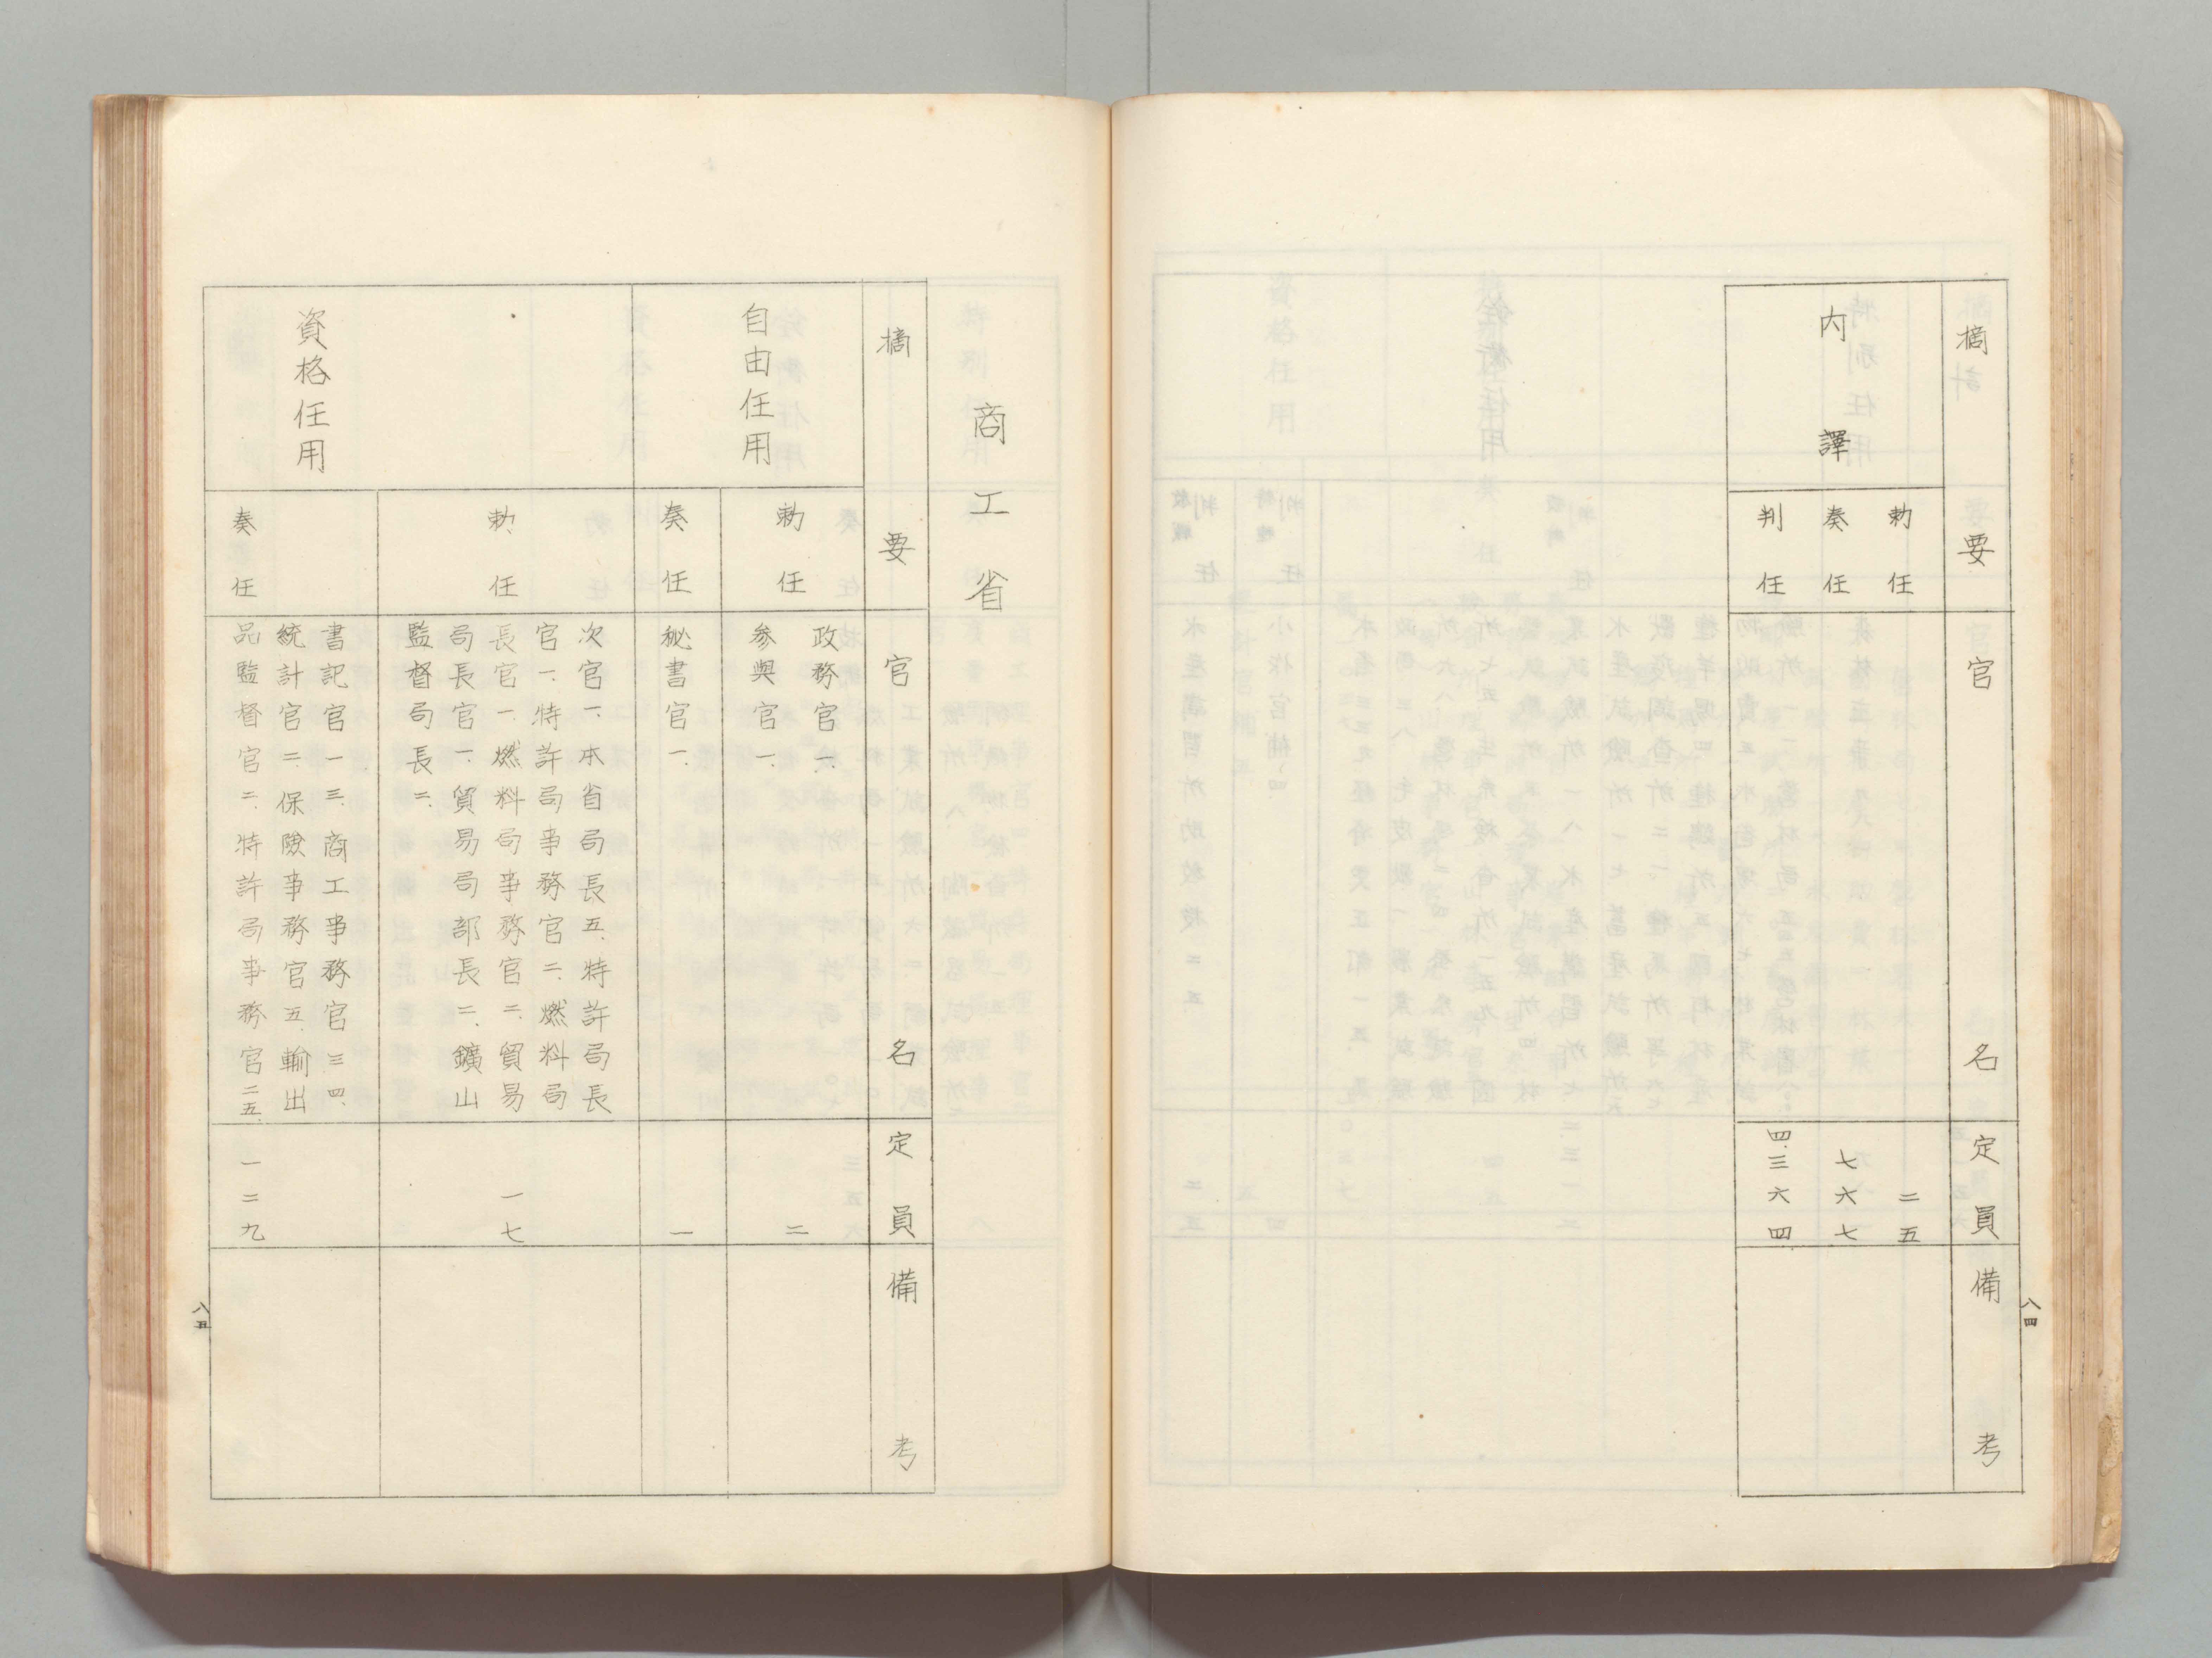 摘要
官名
定員
備考
内譯
勅任
二五
奏任
七六七
判任
四、三六四
八四
商工省
摘要
官名
定員
備考
自由任用
勅任
政務官一、
參與官一、
二
奏任
秘書官一、
一
資格任用
勅任
次官一、本省局長五、特許局長
官一、特許局事務官二、燃料局
長官一、燃料局事務官二、貿易
局長官一、貿易局部長二、鑛山
監督局長二、
一七
奏任
書記官一三、商工事務官三四、
統計官二、保險事務官五、輸出
品監督官二、特許局事務官二五、
一二九
八五